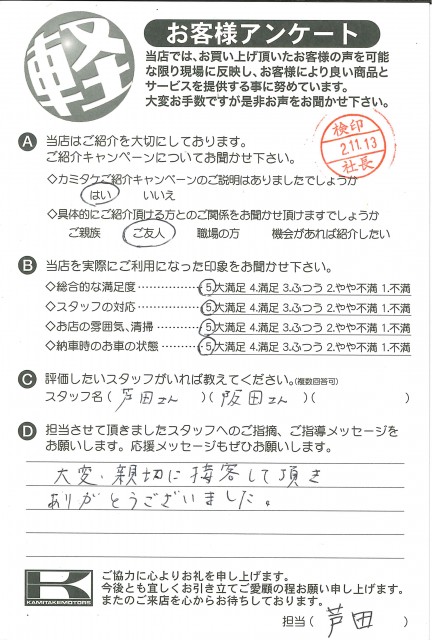 軽
お客様アンケート
当店では、お買い上げ頂いたお客様の声を可能
な限り現場に反映し、お客様により良い商品と
サービスを提供する事に努めています。
大変お手数ですが是非お声をお聞かせ下さい。
検印
2.11.13
社長
A 当店はご紹介を大切にしております。
ご紹介キャンペーンについてお聞かせ下さい。
◇カミタケご紹介キャンペーンのご説明はありましたでしょうか
はい いいえ
◇具体的にご紹介頂ける方とのご関係をお聞かせ頂けますでしょうか
ご親族 ご友人 職場の方 機会があれば紹介したい
B 当店を実際にご利用になった印象をお聞かせ下さい。
◇総合的な満足度 ………… 5.大満足 4.満足 3.ふつう 2.やや不満 1.不満
◇スタッフの対応 ………… 5.大満足 4.満足 3.ふつう 2.やや不満 1.不満
◇お店の雰囲気、清掃 …… 5.大満足 4.満足 3.ふつう 2.やや不満 1.不満
◇納車時のお車の状態 …… 5.大満足 4.満足 3.ふつう 2.やや不満 1.不満
C 評価したいスタッフがいれば教えてください。(複数回答可)
スタッフ名 ( 芦田さん )( 阪田さん )( )
D 担当させて頂きましたスタッフへのご指摘、ご指導メッセージを
お願いします。応援メッセージもぜひお願いします。
大変、親切に接客して頂き
ありがとうございました。
K
KAMITAKEMOTORS
ご協力に心よりお礼を申し上げます。
今後とも宜しくお引き立てご愛顧の程お願い申し上げます。
またのご来店を心からお待ちしております。
担当 ( 芦田 )